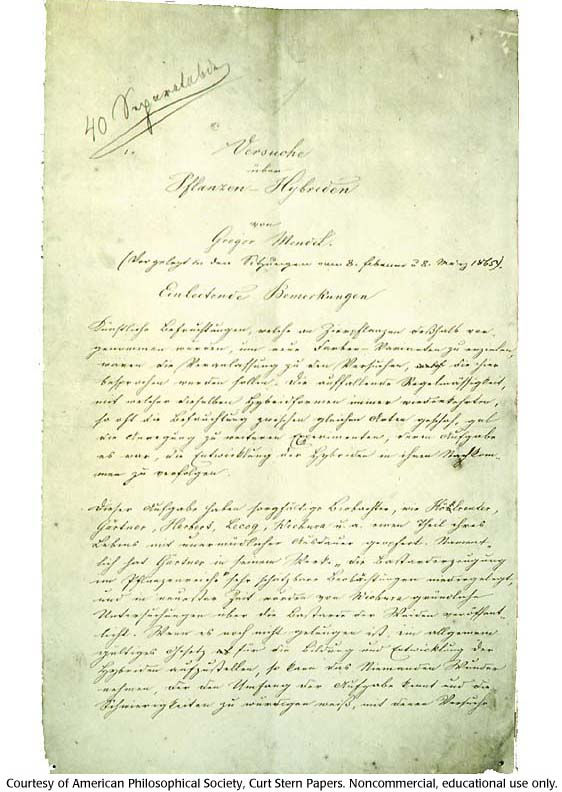 40 Separatabdr
1.
Versuche
über
Pflanzen-Hybriden
von
Gregor Mendel.
(Vorgelegt in den Sitzungen vom 8. Februar u 8. März 1865).
Einleitende Bemerkungen
Künstliche Befruchtungen, welche an Zierpflanzen deßhalb vor-
genommen wurden, um neue Farben-Varianten zu erzielen,
waren die Veranlassung zu den Versuchen, die hier
besprochen werden sollen. Die auffallende Regelmässigkeit,
mit welcher dieselben Hybridformen immer wiederkehrten,
so oft die Befruchtung zwischen gleichen Arten geschah, gab
die Anregung zu weiteren Experimenten, deren Aufgabe
es war, die Entwicklung der Hybriden in ihren Nachkom-
men zu verfolgen.
Dieser Aufgabe haben sorgfältige Beobachter, wie Kölreuter,
Gärtner, Herbert, Lecoq, Wichura u. a. einen Theil ihres
Lebens mit unermüdlicher Ausdauer geopfert. Nament-
lich hat Gärtner in seinem Werke „die Bastarderzeugung
im Pflanzenreiche" sehr schätzbare Beobachtungen niedergelegt,
und in neuester Zeit wurden von Wichura gründliche
Untersuchungen über die Bastarde der Weiden veröffent-
licht. Wenn es noch nicht gelungen ist, ein allgemein
giltiges Gesetz für die Bildung und Entwicklung der
Hybriden aufzustellen, so kann das Niemanden Wunder
nehmen, der den Umfang der Aufgabe kennt und die
Schwierigkeiten zu würdigen weiß, mit denen Versuche
Courtesy of American Philosophical Society, Curt Stern Papers. Noncommercial, educational use only.